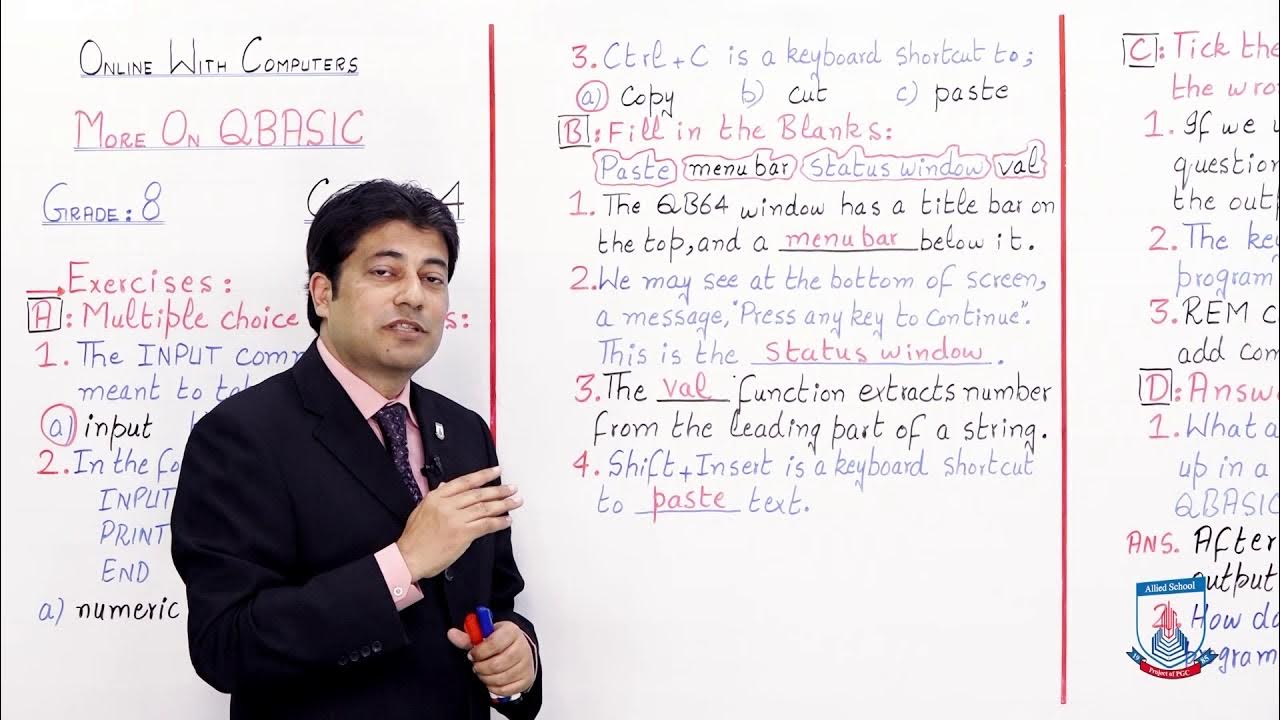 Online With Computers
More On QBASIC
Grade: 8
4
Exercises:
A: Multiple choice
1. The INPUT
meant to
a) input
2. In the
INPUT
PRINT
END
a) numeric
3. Ctrl+C is a keyboard shortcut to;
a) copy b) cut c) paste
B: Fill in the Blanks:
Paste menu bar Status window val
1. The QB64 window has a title bar on
the top, and a menu bar below it.
2. We may see at the bottom of screen,
a message, "Press any key to Continue".
This is the Status window.
3. The val function extracts number
from the leading part of a string.
4. Shift+Insert is a keyboard shortcut
to paste text.
C: Tick the
the
1. If we
question
the
2. The
program
3. REM
add
D:
1. What
up in a
QBASIC
Ans. After
output
2. How
Allied School
Project of PGC